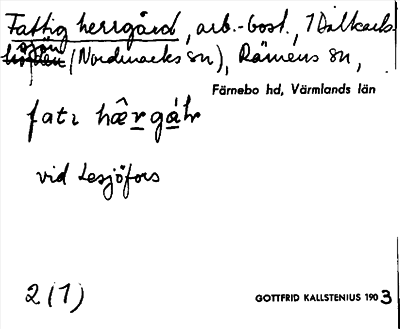 Fattig herrgård, arb.-bost., 1 Dalkarls-
sjön
(Nordmarks sn), Rämens sn,
Färnebo hd, Värmlands län
fatı hæ̂r gáḷr
vid Lesjöfors
2 (1)
GOTTFRID KALLSTENIUS 1903